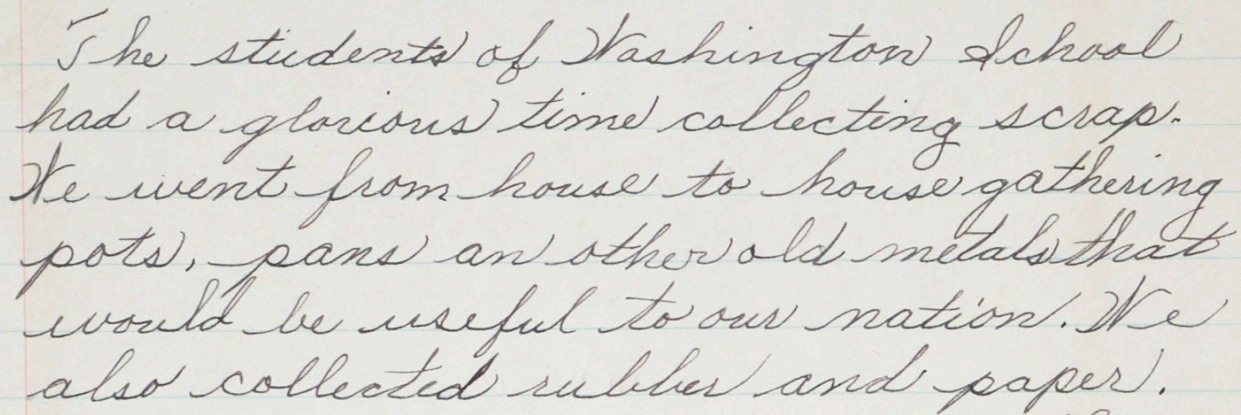 The students of Washington School
had a glorious time collecting scrap.
We went from house to house gathering
pots, pans an other old metals that
would be useful to our nation. We
also collected rubber and paper.